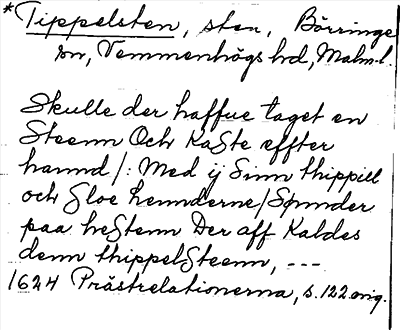 *Tippelsten, sten, Börringe
sn, Vemmenhögs hd, Malm.l.
Skulle der haffue taget en
Steenn Och Kaste effter
hannd /: Med ij Sinn thippell
och Sloe hennderne / Sønnder
paa hestenn Der aff Kaldes
denn thippelSteenn, ---
1624 Prästrelationerna, s. 122 orig.